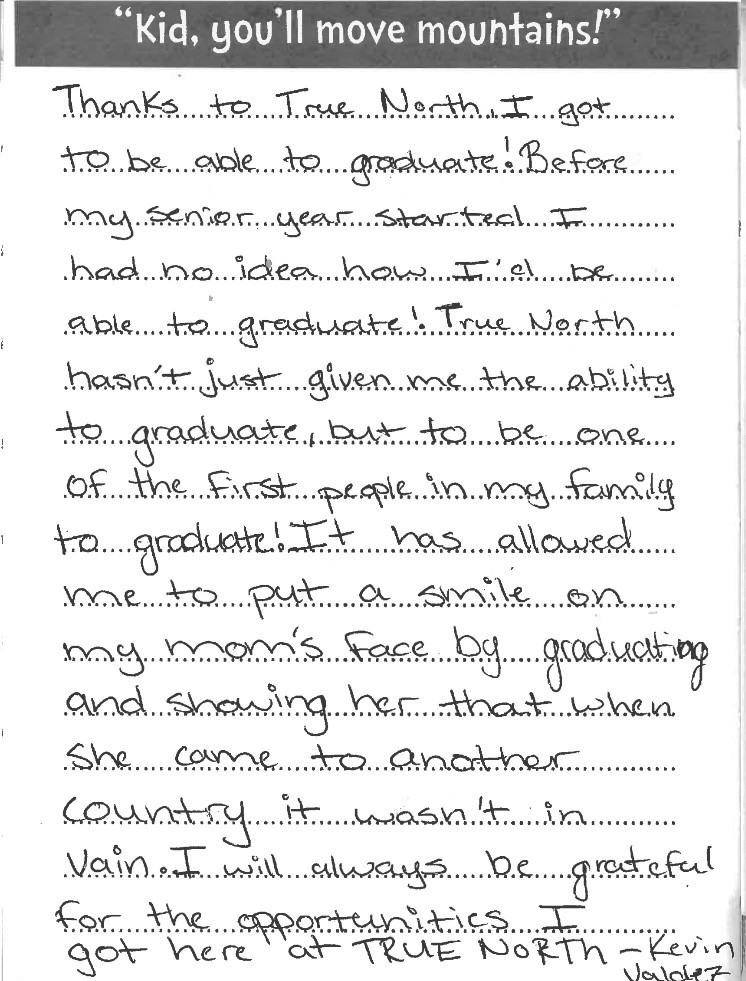 “Kid, you'll move mountains!”
Thanks to True North, I got
to be able to graduate! Before
my senior year started I
had no idea how I'd be
able to graduate! True North
hasn't just given me the ability
to graduate, but to be one
of the first people in my family
to graduate! It has allowed
me to put a smile on
my mom's face by graduating
and showing her that when
she came to another
country it wasn't in
vain. I will always be grateful
for the opportunities I
got here at TRUE NORTH - Kevin
Valdez